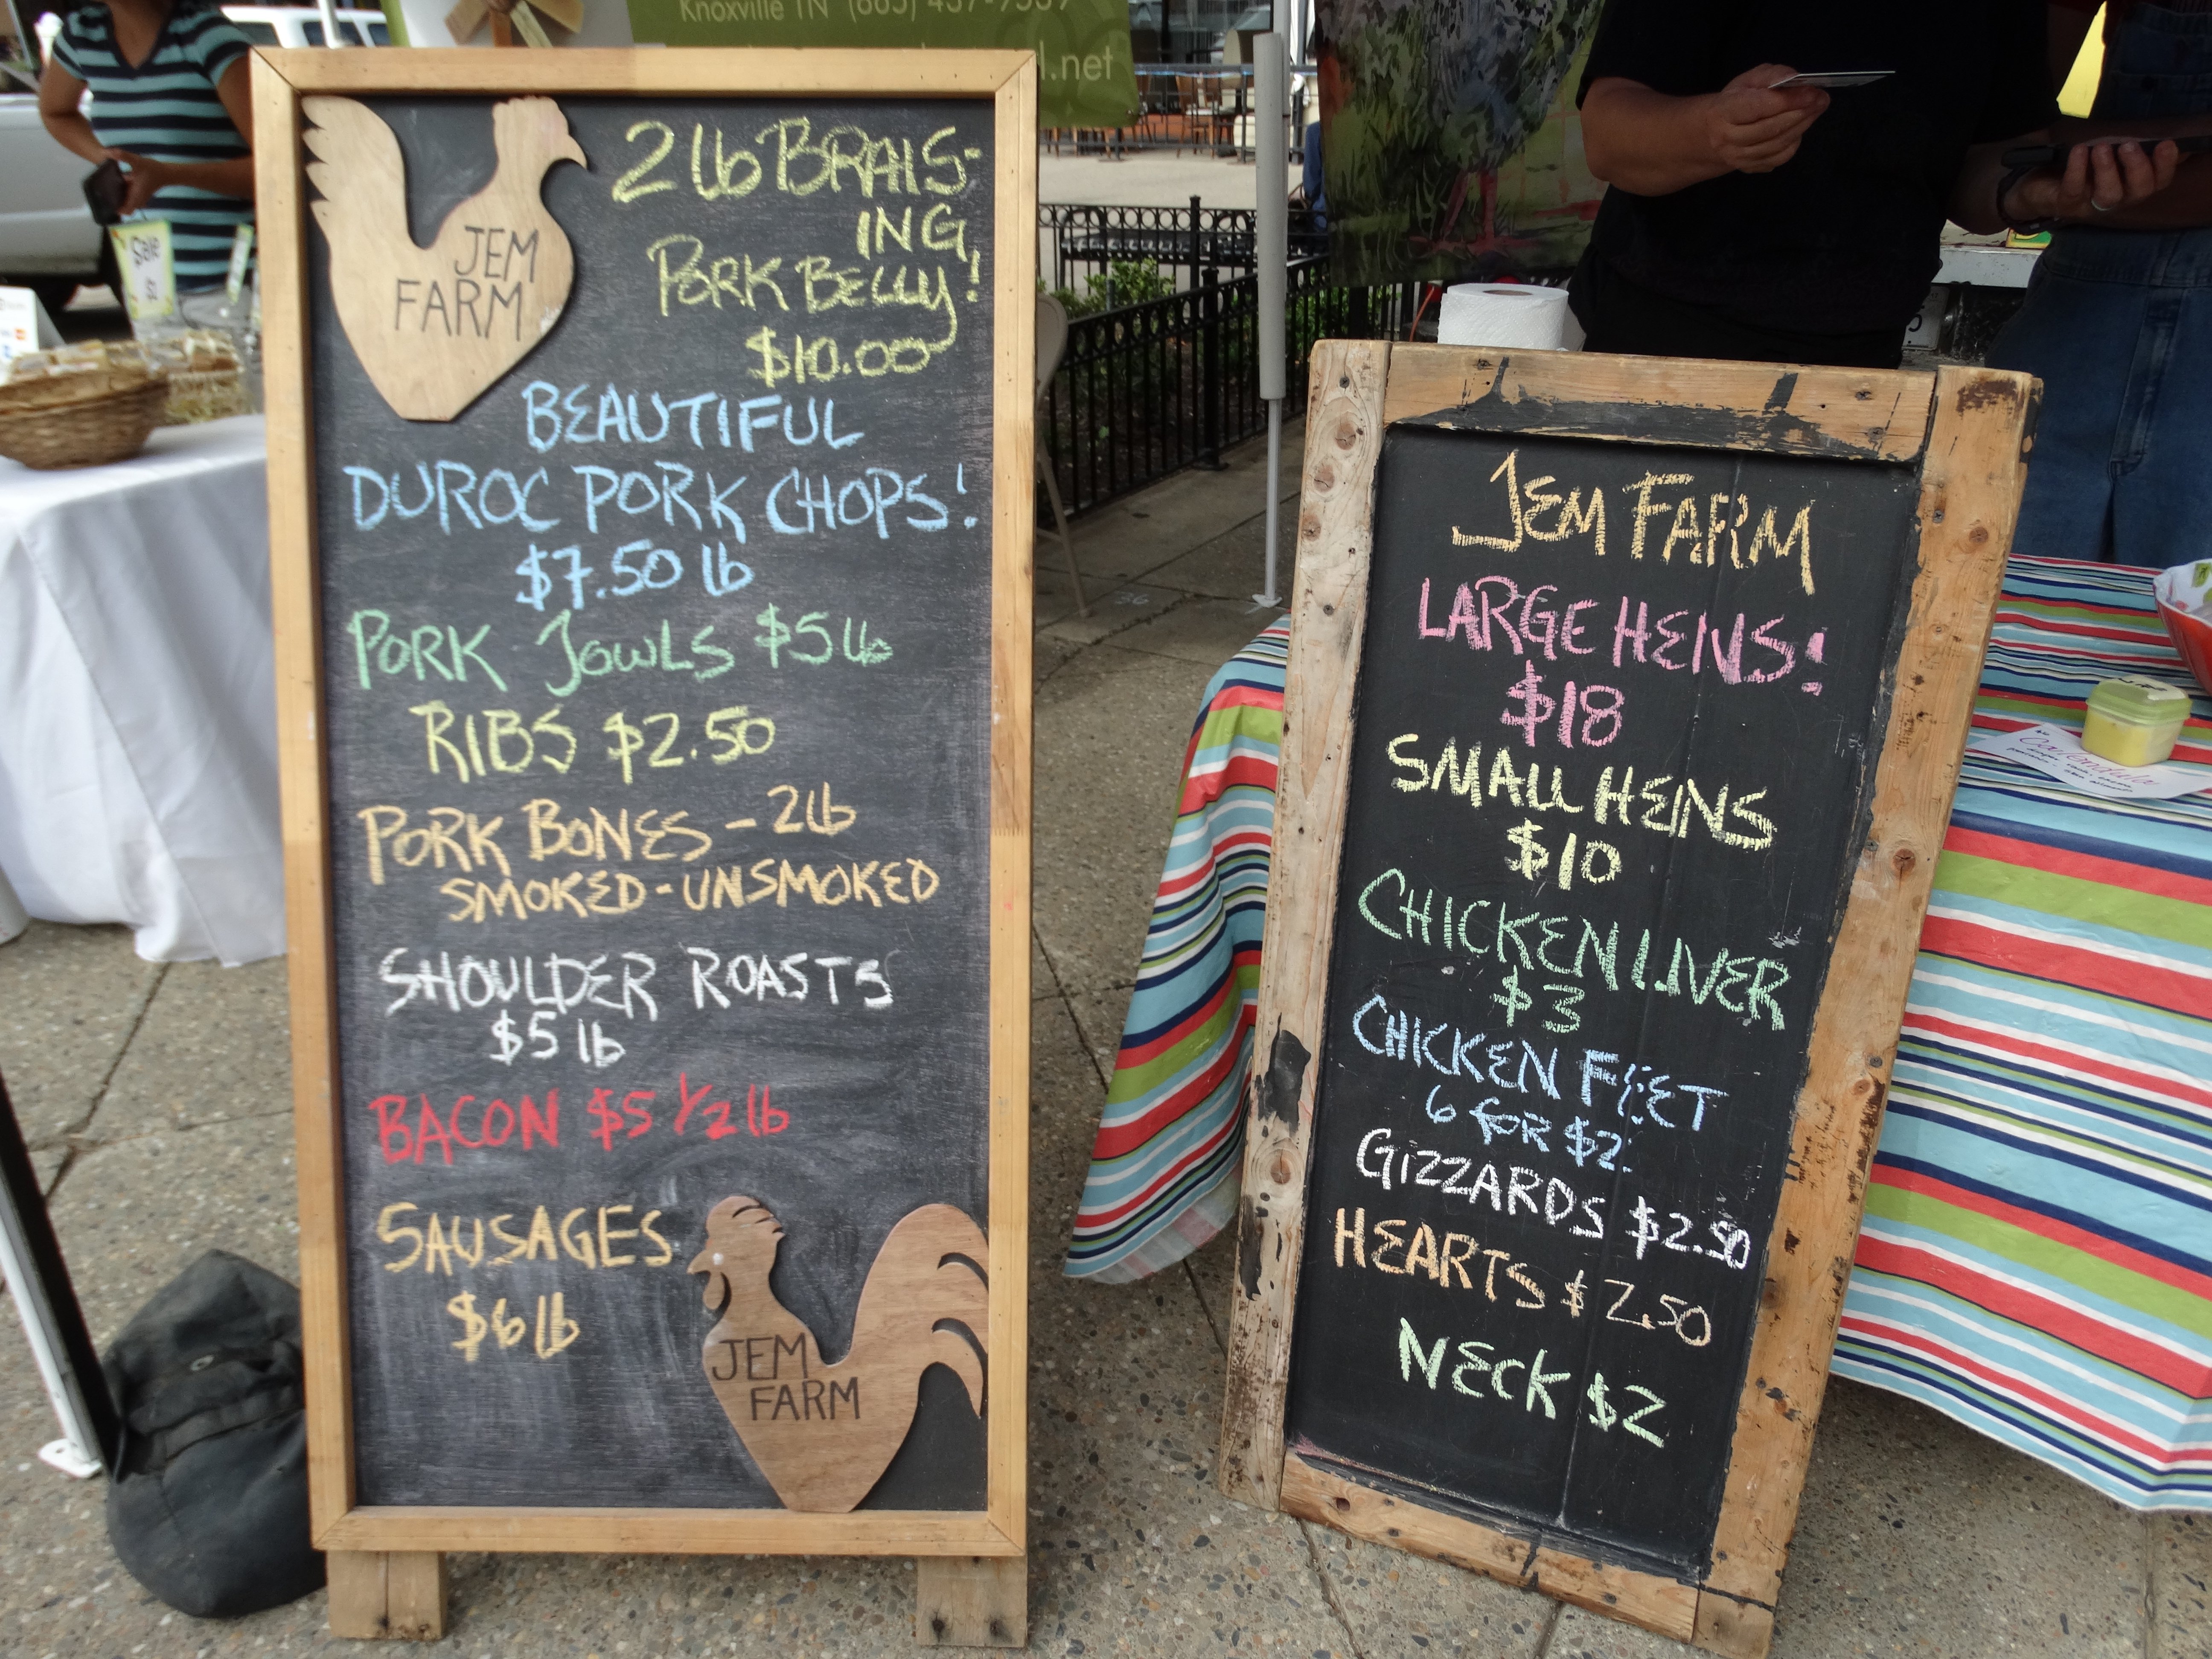 Knoxville TN
l.net
Sale
JEM
FARM
2 lb BRAIS-
ING
PORK BELLY!
$10.00
BEAUTIFUL
DUROC PORK CHOPS!
$7.50 lb
PORK JOWLS $5 lb
RIBS $2.50
PORK BONES - 2 lb
SMOKED - UNSMOKED
SHOULDER ROASTS
$5 lb
BACON $5 1/2 lb
SAUSAGES
$6 lb
JEM
FARM
JEM FARM
LARGE HENS!
$18
SMALL HENS
$10
CHICKEN LIVER
$3
CHICKEN FEET
6 FOR $2
GIZZARDS $2.50
HEARTS $2.50
NECK $2
Calendula